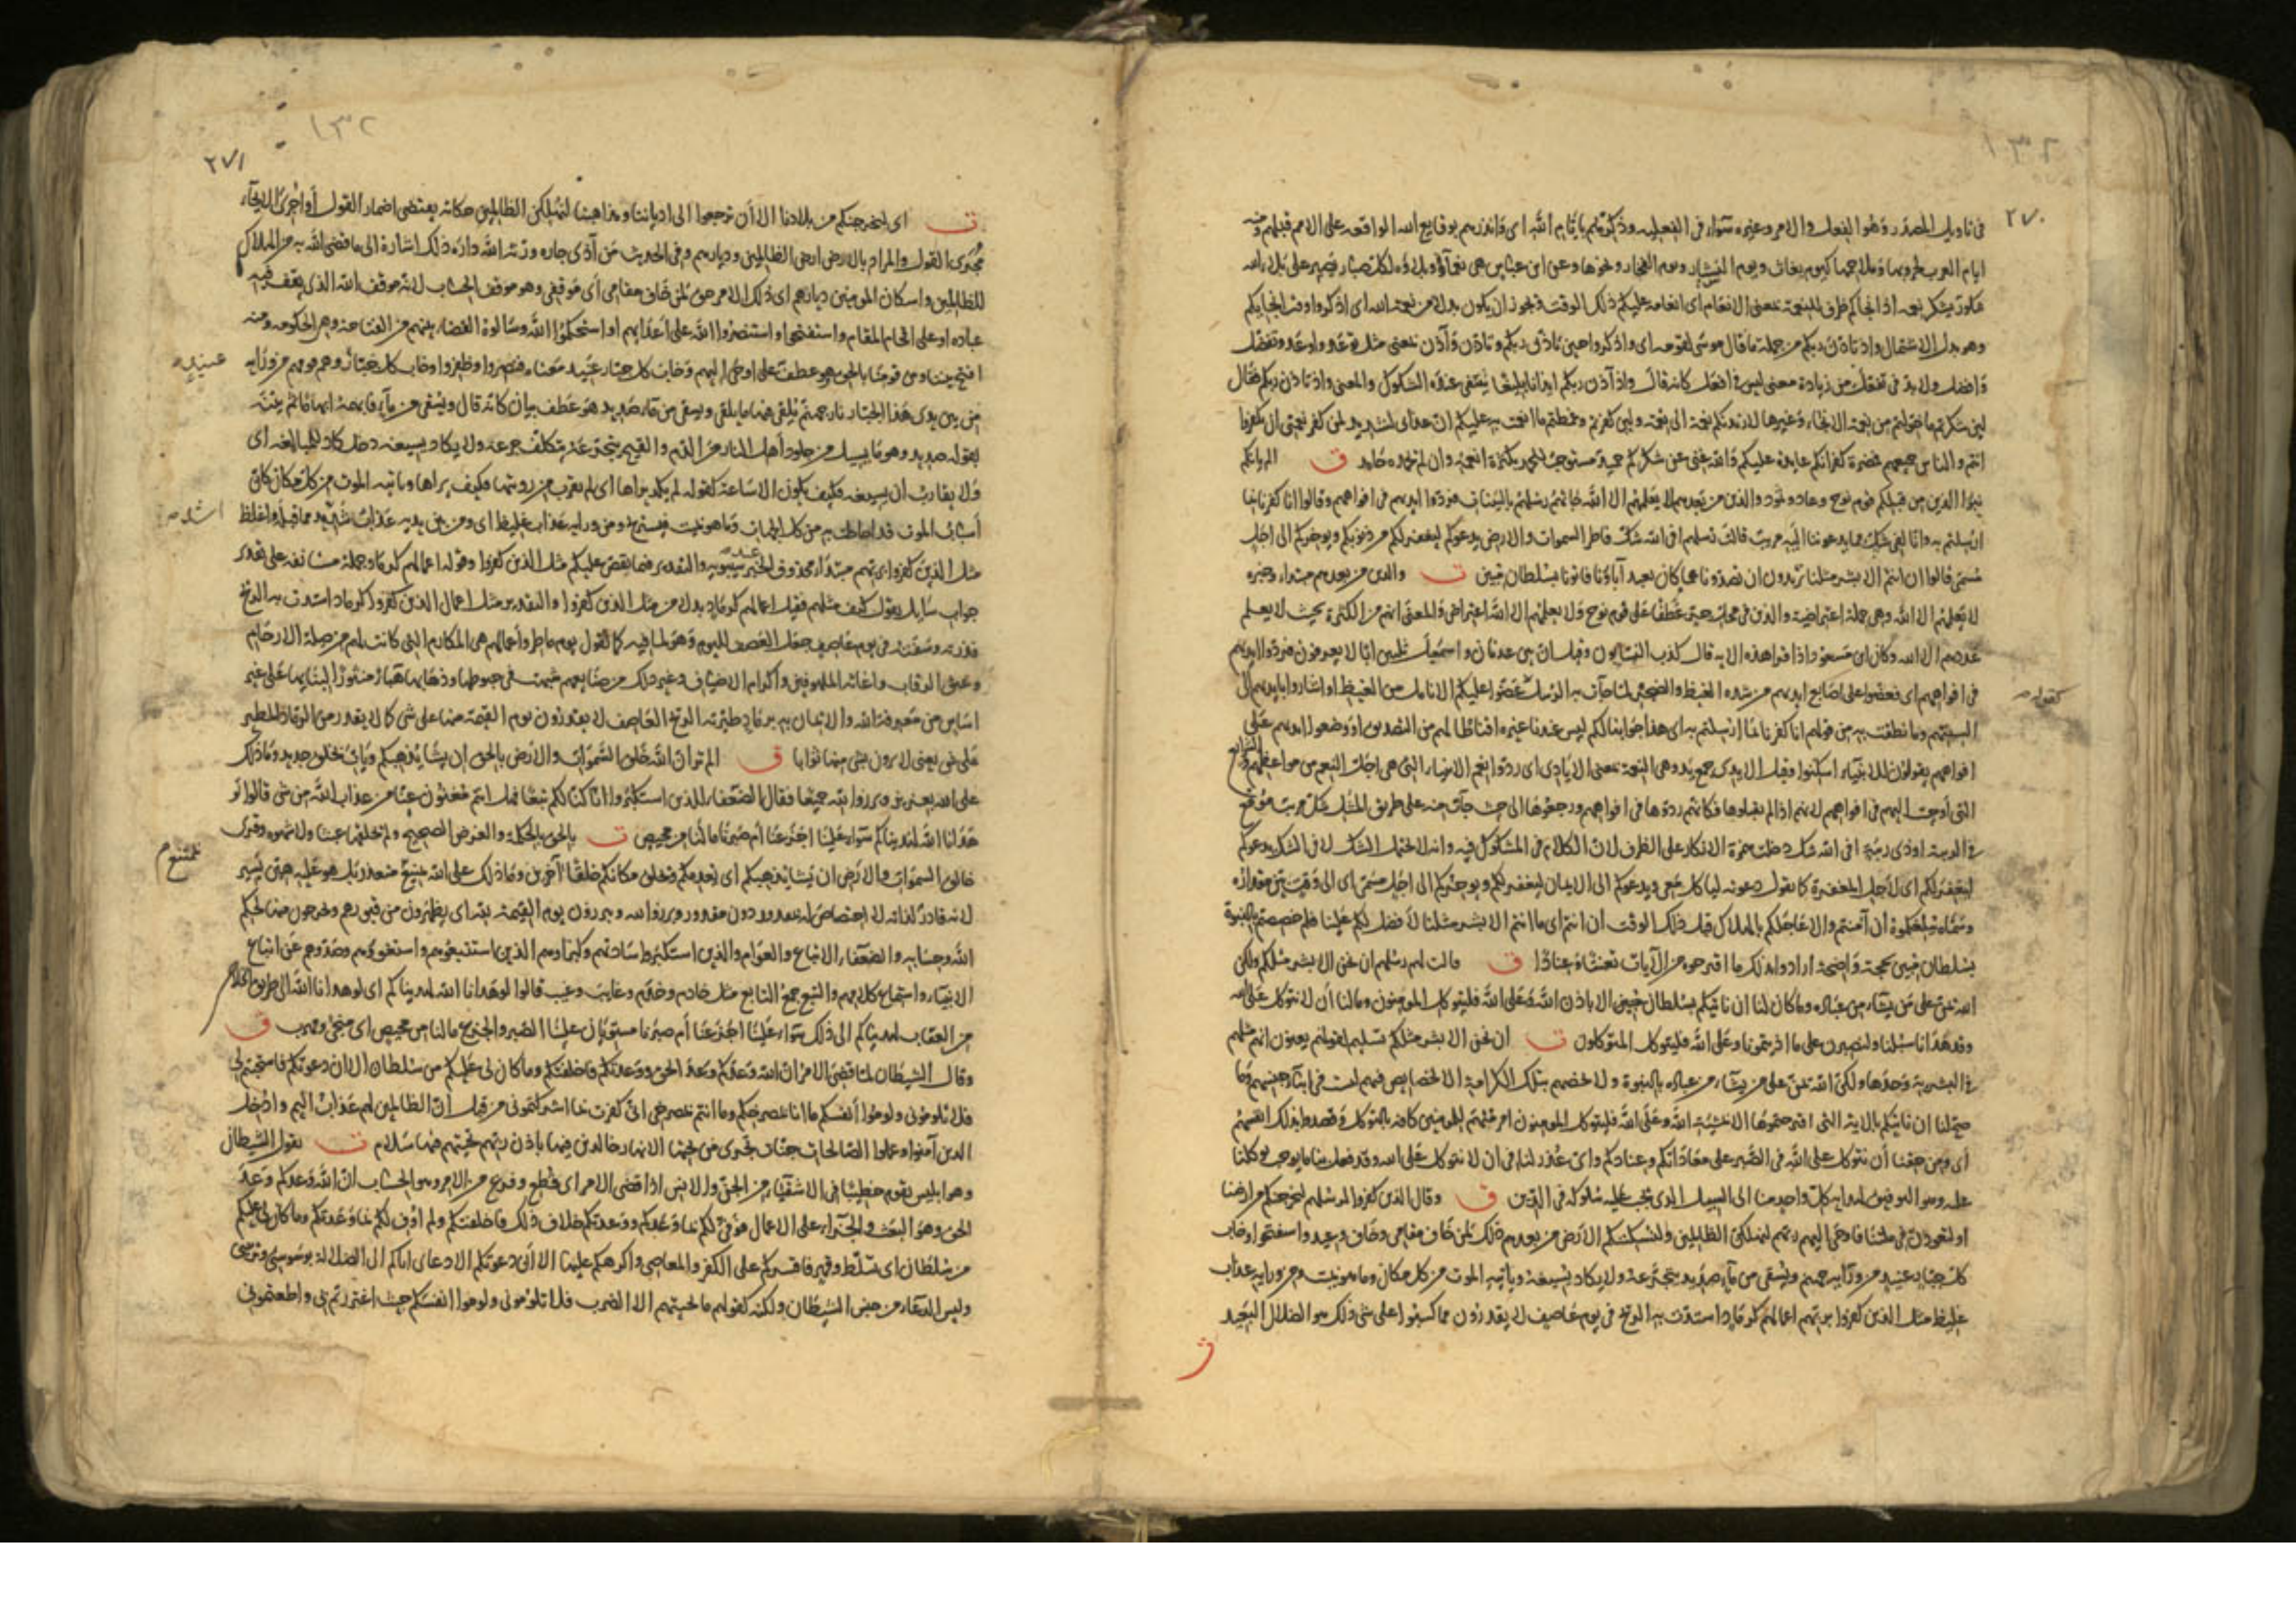 ٢٧٠
في تاويل المصدر وهو الفعل والامر وغيره سواء في الفعلية وذكرهم بايام الله اى وانذرهم بوقايع الله الواقعة على الامم قبلهم ومنه
ايام العرب لحروبها وملاحمها كيوم بعاث ويوم النسار ويوم الفجار ونحوها وعن ابن عباس هى نعمآؤه وبلاؤه لكل صبار يصبر على بلاء الله
شكور يشكر نعمه اذ انجاكم ظرف للنعمة بمعنى الانعام اى انعامه عليكم ذلك الوقت ويجوز ان يكون بدلا من نعمة الله اى اذكروا وقت انجايكم
وهو بدل الاشتمال واذ تاذن ربكم من جملة ما قال موسى لقومه اى واذكروا حين تاذن ربكم وتاذن وآذن بمعنى مثل توعد واوعد وتفضل
وافضل ولا بد في تفعل من زيادة معنى ليس في افعل كانه قال واذ آذن ربكم ايذانا بليغا ينتفى عنده الشكوك والمعنى واذ تاذن ربكم فقال
لئن شكرتم ما خولتكم من نعمة الانجاء وغيرها لازيدنكم نعمة الى نعمة ولئن كفرتم وغمطتم ما انعمت به عليكم ان عذابى لشديد لمن كفر نعمتى ان تكفروا
انتم والناس جميعهم فمضرة كفرانكم عايدة عليكم والله غنى عن شكركم حميد مستوجب للحمد بكثرة انعمه وان لم يحمده حامد ق الم ياتكم
نبؤا الذين من قبلكم قوم نوح وعاد وثمود والذين من بعدهم لا يعلمهم الا الله جائتهم رسلهم بالبينات فردوا ايديهم في افواههم وقالوا انا كفرنا بما
ارسلتم به وانا لفى شك مما يدعوننا اليه مريب قالت رسلهم افى الله شك فاطر السموات والارض يدعوكم ليغفر لكم من ذنوبكم ويوخركم الى اجل
مسمى قالوا ان انتم الا بشر مثلنا تريدون ان تصدونا عما كان يعبد آباؤنا فاتونا بسلطان مبين ت والذين من بعدهم مبتداء وخبره
لا يعلمهم الا الله وهى جملة اعتراضية والذين في محل جر عطفا على قوم نوح ولا يعلمهم الا الله اعتراض والمعنى انهم من الكثرة بحيث لا يعلم
عددهم الا الله وكان ابن مسعود اذا قرا هذه الاية قال كذب النسابون وقيل ان بين عدنان واسمعيل ثلثين ابا لا يعرفون فردوا ايديهم
في افواههم اى فعضوا على اصابع ايديهم من شدة الغيظ والضجر لما جآءت به الرسل عضوا عليكم الانامل من الغيظ او اشاروا بايديهم الى
كقوله
السنتهم وما نطقت به من قولهم انا كفرنا بما ارسلتم به اى هذا جوابنا لكم ليس عندنا غيره اقناطا لهم من التصديق او وضعوا ايديهم على
افواههم يقولون للانبياء اسكتوا وقيل الايدى جمع يد وهى النعمة بمعنى الايادى اى ردوا نعم الانبياء التى هى اجل النعم من مواعظهم والشرايع
التى اوحيت اليهم في افواههم لانهم اذا لم يقبلوها فكانهم ردوها في افواههم ورجعوها الى حيث جآءت منه على طريق المثل شك مريب موقع
في الريبة او ذى ريبة افى الله شك دخلت همزة الانكار على الظرف لان الكلام في المشكوك فيه وانه لا يحتمل الشك لا في الشك يدعوكم
ليغفر لكم اى لاجل المغفرة كما تقول دعوته لياكل معى ويدعوكم الى الايمان ليغفر لكم ويوخركم الى اجل مسمى اى الى وقت بين مقداره
وسماه يبلغكموه ان آمنتم والا عاجلكم بالهلاك قبل ذلك الوقت ان انتم اى ما انتم الا بشر مثلنا لا فضل لكم علينا فلم خصصتم بالنبوة
بسلطان مبين بحجة واضحة ارادوا بذلك ما اقترحوه من الآيات تعنتا وعنادا ق قالت لهم رسلهم ان نحن الا بشر مثلكم ولكن
الله يمن على من يشاء من عباده وما كان لنا ان ناتيكم بسلطان مبين الا باذن الله وعلى الله فليتوكل المومنون وما لنا ان لا نتوكل على الله
وقد هدانا سبلنا ولنصبرن على ما اذيتمونا وعلى الله فليتوكل المتوكلون ت ان نحن الا بشر مثلكم تسليم لقولهم يعنون انهم مثلهم
في البشرية وحدها ولكن الله يمن على من يشاء من عباده بالنبوة ولا يخصهم بتلك الكرامة الا لخصايص فيهم ليست في ابناء جنسهم وما
صح لنا ان ناتيكم بالاية التى اقترحتموها الا بمشية الله وعلى الله فليتوكل المومنون امر منهم للمومنين كافة بالتوكل وقصدوا بذلك انفسهم
اى ومن حقنا ان نتوكل على الله في الصبر على معاداتكم وعنادكم واى عذر لنا في ان لا نتوكل على الله وقد فعل بنا ما يوجب توكلنا
عليه وهو التوفيق لهداية كل واحد منا الى السبيل الذى يجب عليه سلوكه في الدين ق وقال الذين كفروا لرسلهم لنخرجنكم من ارضنا
او لتعودن في ملتنا فاوحى اليهم ربهم لنهلكن الظالمين ولنسكننكم الارض من بعدهم ذلك لمن خاف مقامى وخاف وعيد واستفتحوا وخاب
كل جبار عنيد من ورآيه جهنم ويسقى من مآء صديد يتجرعه ولا يكاد يسيغه وياتيه الموت من كل مكان وما هو بميت ومن ورايه عذاب
غليظ مثل الذين كفروا بربهم اعمالهم كرماد اشتدت به الريح في يوم عاصف لا يقدرون مما كسبوا على شى ذلك هو الضلال البعيد
ت
١٣٢
٢٧١
ت اى ليخرجنكم من بلادنا الا ان ترجعوا الى ادياننا ومذاهبنا لنهلكن الظالمين حكاية يقتضى اضمار القول او اجرى الايحآء
مجرى القول والمراد بالارض ارض الظالمين وديارهم وفى الحديث من آذى جاره ورثه الله داره ذلك اشارة الى ما قضى الله به من اهلاك
الظالمين واسكان المومنين ديارهم اى ذلك الامر حق لمن خاف مقامى اى موقفى وهو موقف الحساب لانه موقف الله الذى يقف فيه
عباده او على اقحام المقام واستفتحوا واستنصروا الله على اعدايهم او استحكموا الله وسالوه القضاء بينهم من الفتاحة وهى الحكومة ومنه
افتح بيننا وبين قومنا بالحق وهو عطف على اوحى اليهم وخاب كل جبار عنيد معناه فنصروا وظفروا وخاب كل جبار وهم قومهم من ورآيه
عنيد
من بين يدى هذا الجبار نار جهنم يلقى فيها ما يلقى ويسقى من مآء صديد هو عطف بيان كانه قال ويسقى من مآء فابهمه ابهاما ثم بينه
بقوله صديد وهو ما يسيل من جلود اهل النار من الدم والقيح يتجرعه يتكلف جرعه ولا يكاد يسيغه دخل كاد للمبالغة اى
ولا يقارب ان يسيغه فكيف يكون الاساغة كقوله لم يكد يراها اى لم يقرب من رويتها فكيف يراها وياتيه الموت من كل مكان كان
اسباب الموت قد احاطت به من كل الجهات وما هو بميت فيستريح ومن ورايه عذاب غليظ اى ومن بين يديه عذاب اشد مما قبله واغلظ
اشد
مثل الذين كفروا بربهم مبتداء محذوف الخبر عند سيبويه والتقدير فيما يقص عليكم مثل الذين كفروا وقوله اعمالهم كرماد جملة مستانفة على تقدير
جواب سايل يقول كيف مثلهم فقيل اعمالهم كرماد او بدل من مثل الذين كفروا والتقدير مثل اعمال الذين كفروا كرماد اشتدت به الريح
فذرته وسفته في يوم عاصف جعل العصف لليوم وهو لما فيه كما تقول يوم ماطر واعمالهم هى المكارم التى كانت لهم من صلة الارحام
وعتق الرقاب واغاثة الملهوفين واكرام الاضياف وغير ذلك من صنايعهم شبهت في حبوطها وذهابها هباء منثورا لبنايها على غير
اساس من معرفة الله والايمان به برماد طيرته الريح العاصف لا يقدرون يوم القيمة منها على شى كما لا يقدر من الرماد المطير
على شى يعنى لا يرون بشى منها ثوابا ق الم تر ان الله خلق السموات والارض بالحق ان يشا يذهبكم ويات بخلق جديد وما ذلك
على الله بعزيز وبرزوا لله جميعا فقال الضعفاء للذين استكبروا انا كنا لكم تبعا فهل انتم مغنون عنا من عذاب الله من شى قالوا لو
هدانا الله لهديناكم سواء علينا اجزعنا ام صبرنا ما لنا من محيص ت بالحق بالحكمة والغرض الصحيح ولم يخلقها عبثا ولا شهوة وقرى
خالق السموات والارض ان يشا يذهبكم اى يعدمكم ويخلق مكانكم خلقا آخرين وما ذلك على الله بعزيز بممتنع متعذر بل هو عليه هين يسير
بممتنع
لانه قادر لذاته لا اختصاص له بمقدور دون مقدور وبرزوا لله ويبرزون يوم القيمة لله اى يظهرون من قبورهم ويخرجون منها لحكم
الله وحسابه والضعفاء الاتباع والعوام والذين استكبروا ساداتهم وكبراوهم الذين استتبعوهم واستغووهم وصدوهم عن اتباع
الانبياء واستماع كلامهم والتبع جمع التابع مثل خادم وخدم وغايب وغيب قالوا لو هدانا الله لهديناكم اى لو هدانا الله الى طريق الخلاص
من العقاب لهديناكم الى ذلك سواء علينا اجزعنا ام صبرنا مستويان علينا الصبر والجزع ما لنا من محيص اى منجى ومهرب ق
وقال الشيطان لما قضى الامر ان الله وعدكم وعد الحق ووعدتكم فاخلفتكم وما كان لى عليكم من سلطان الا ان دعوتكم فاستجبتم لى
فلا تلومونى ولوموا انفسكم ما انا بمصرخكم وما انتم بمصرخى انى كفرت بما اشركتمونى من قبل ان الظالمين لهم عذاب اليم وادخل
الذين آمنوا وعملوا الصالحات جنات تجرى من تحتها الانهار خالدين فيها باذن ربهم تحيتهم فيها سلام ت يقول الشيطان
وهو ابليس يقوم خطيبا في الاشقيآء من الجن والانس اذا قضى الامر اى قطع وفرغ من الامر وهو الحساب ان الله وعدكم وعد
الحق وهو البعث والجزاء على الاعمال فوفى لكم بما وعدكم ووعدتكم خلاف ذلك فاخلفتكم ولم اوف لكم بما وعدتكم وما كان لى عليكم
من سلطان اى تسلط وقهر فاقسركم على الكفر والمعاصى واكرهكم عليها الا ان دعوتكم الا دعاى اياكم الى الضلالة بوسوستى وتزيينى
وليس الدعاء من جنس السلطان ولكنه كقولهم ما تحيتهم الا الضرب فلا تلومونى ولوموا انفسكم حيث اغتررتم بى واطعتمونى